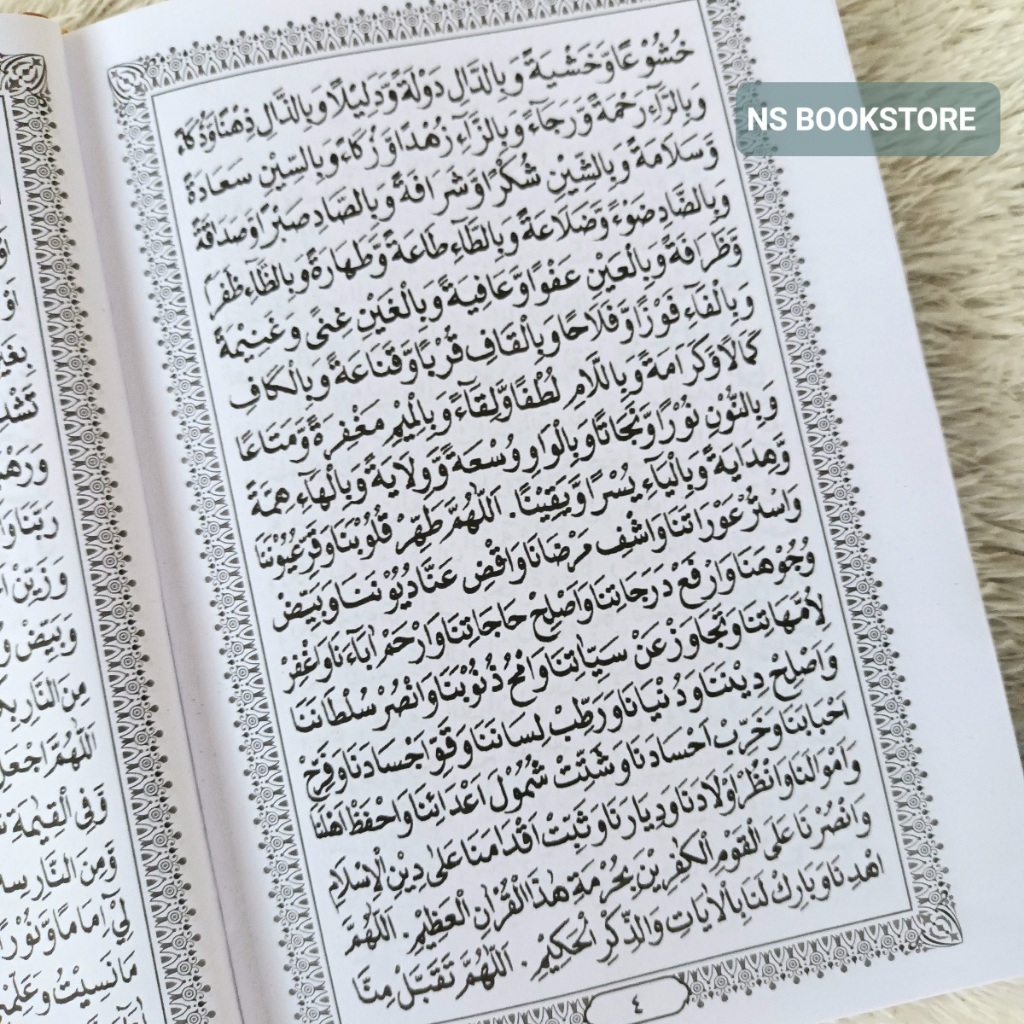 NS BOOKSTORE
خُشُوْعًا وَّخَشْيَةً وَبِالدَّالِ دَوْلَةً وَّدَلِيْلًا وَبِالذَّالِ ذِهْنًا وَّذُكَاءً
وَبِالرَّآءِ رَحْمَةً وَّرَجَآءً وَبِالزَّآءِ زُهْدًا وَّزُكَاءً وَبِالسِّيْنِ سَعَادَةً
وَّسَلَامَةً وَبِالشِّيْنِ شُكْرًا وَّشَرَافَةً وَبِالصَّادِ صَبْرًا وَّصَدَاقَةً
وَبِالضَّادِ ضَوْءً وَّضَلَاعَةً وَبِالطَّآءِ طَاعَةً وَّطَهَارَةً وَبِالظَّآءِ ظَفْرًا
وَّظَرَافَةً وَبِالْعَيْنِ عَفْوًا وَّعَافِيَةً وَبِالْغَيْنِ غِنًى وَغَنِيْمَةً
وَبِالْفَآءِ فَوْزًا وَّفَلَاحًا وَبِالْقَافِ قُرْبًا وَّقَنَاعَةً وَبِالْكَافِ
كَمَالًا وَّكَرَامَةً وَبِاللَّامِ لُطْفًا وَّلِقَآءً وَبِالْمِيْمِ مَغْفِرَةً وَّمَتَاعًا
وَبِالنُّوْنِ نُوْرًا وَّنَجَاتًا وَبِالْوَاوِ وُسْعَةً وَّوِلَايَةً وَبِالْهَآءِ هِمَّةً
وَّهِدَايَةً وَبِالْيَآءِ يُسْرًا وَّيَقِيْنًا. اَللّٰهُمَّ طَهِّرْ قُلُوْبَنَا وَقَرِّ عُيُوْنَنَا
وَاسْتُرْ عَوْرَاتَنَا وَاشْفِ مَرْضَانَا وَاقْضِ عَنَّا دُيُوْنَنَا وَبَيِّضْ
وُجُوْهَنَا وَارْفَعْ دَرَجَاتِنَا وَاَصْلِحْ حَاجَاتِنَا وَارْحَمْ اٰبَآءَنَا وَاغْفِرْ
لِاُمَّهَاتِنَا وَتَجَاوَزْ عَنْ سَيِّاٰتِنَا وَامْحُ ذُنُوْبَنَا وَانْصُرْ سُلْطَانَنَا
وَاَصْلِحْ دِيْنَنَا وَدُنْيَانَا وَرَطِّبْ لِسَانَنَا وَقَوِّ اَجْسَادَنَا وَفَرِّحْ
اَحْبَابَنَا وَخَرِّبْ اَحْسَادَنَا وَشَتِّتْ شُمُوْلَ اَعْدَائِنَا وَاحْفَظْ اَهْلَنَا
وَاَمْوَالَنَا وَانْظُرْ اَوْلَادَنَا وَدِيَارَنَا وَثَبِّتْ اَقْدَامَنَا عَلٰى دِيْنِ الْاِسْلَامِ
وَانْصُرْنَا عَلَى الْقَوْمِ الْكٰفِرِيْنَ بِحُرْمَةِ هٰذَا الْقُرْاٰنِ الْعَظِيْمِ. اَللّٰهُمَّ
اهْدِنَا وَبَارِكْ لَنَا بِالْاٰيَاتِ وَالذِّكْرِ الْحَكِيْمِ. اَللّٰهُمَّ تَقَبَّلْ مِنَّا
٤
اَوْ
بِغَيْرِ
رَبَّنَا وَا
وَزَيِّنْ
وَبَيِّضْ و
مِنَ النَّارِ
اَللّٰهُمَّ اجْعَلِ
وَّفِى الْقِيٰمَةِ
وَّمِنَ النَّارِ
لِيْ اِمَامًا وَّنُوْرًا
مَا نَسِيْتُ وَعَلِّمْنِ